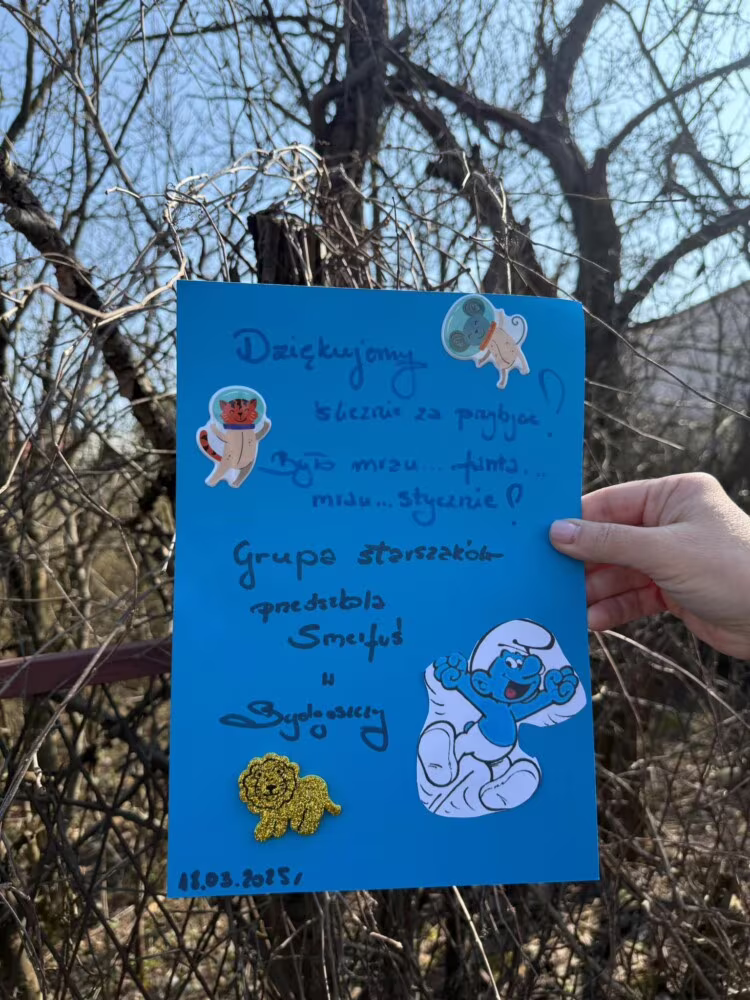 Dziękujemy
ślicznie za przybycie!
Było miau... fanta...
miau... stycznie!
Grupa starszaków
przedszkola
Smerfuś
w
Bydgoszczy
18.03.2025r